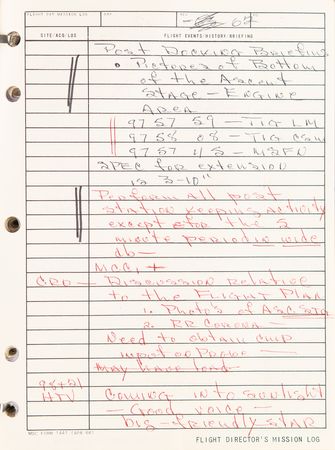 FLIGHT DAY MISSION LOG
DAY
REV
67
SITE/ACQ/LOS
FLIGHT EVENTS HISTORY/BRIEFING
Post Docking Briefing
• Pictures of Bottom
of the Ascent
Stage - Engine
Area
97 57 59 - TIG LM
97 58 08 - TIG CSM
97 57 45 - MSFN
SPEC for extension
is 3-10"
Perform all post
station keeping activity
except stop the 5
minute period in wide
db -
MCC, +
Discussion relative
to the FLIGHT PLAN
1. Photos of
2. RR Corona -
Need to obtain CMP
input or PADS
May have
98+21
HTV
Coming into sunlight
- Good voice -
big-friendly star
MSC FORM 1447 (APR 68)
FLIGHT DIRECTOR'S MISSION LOG